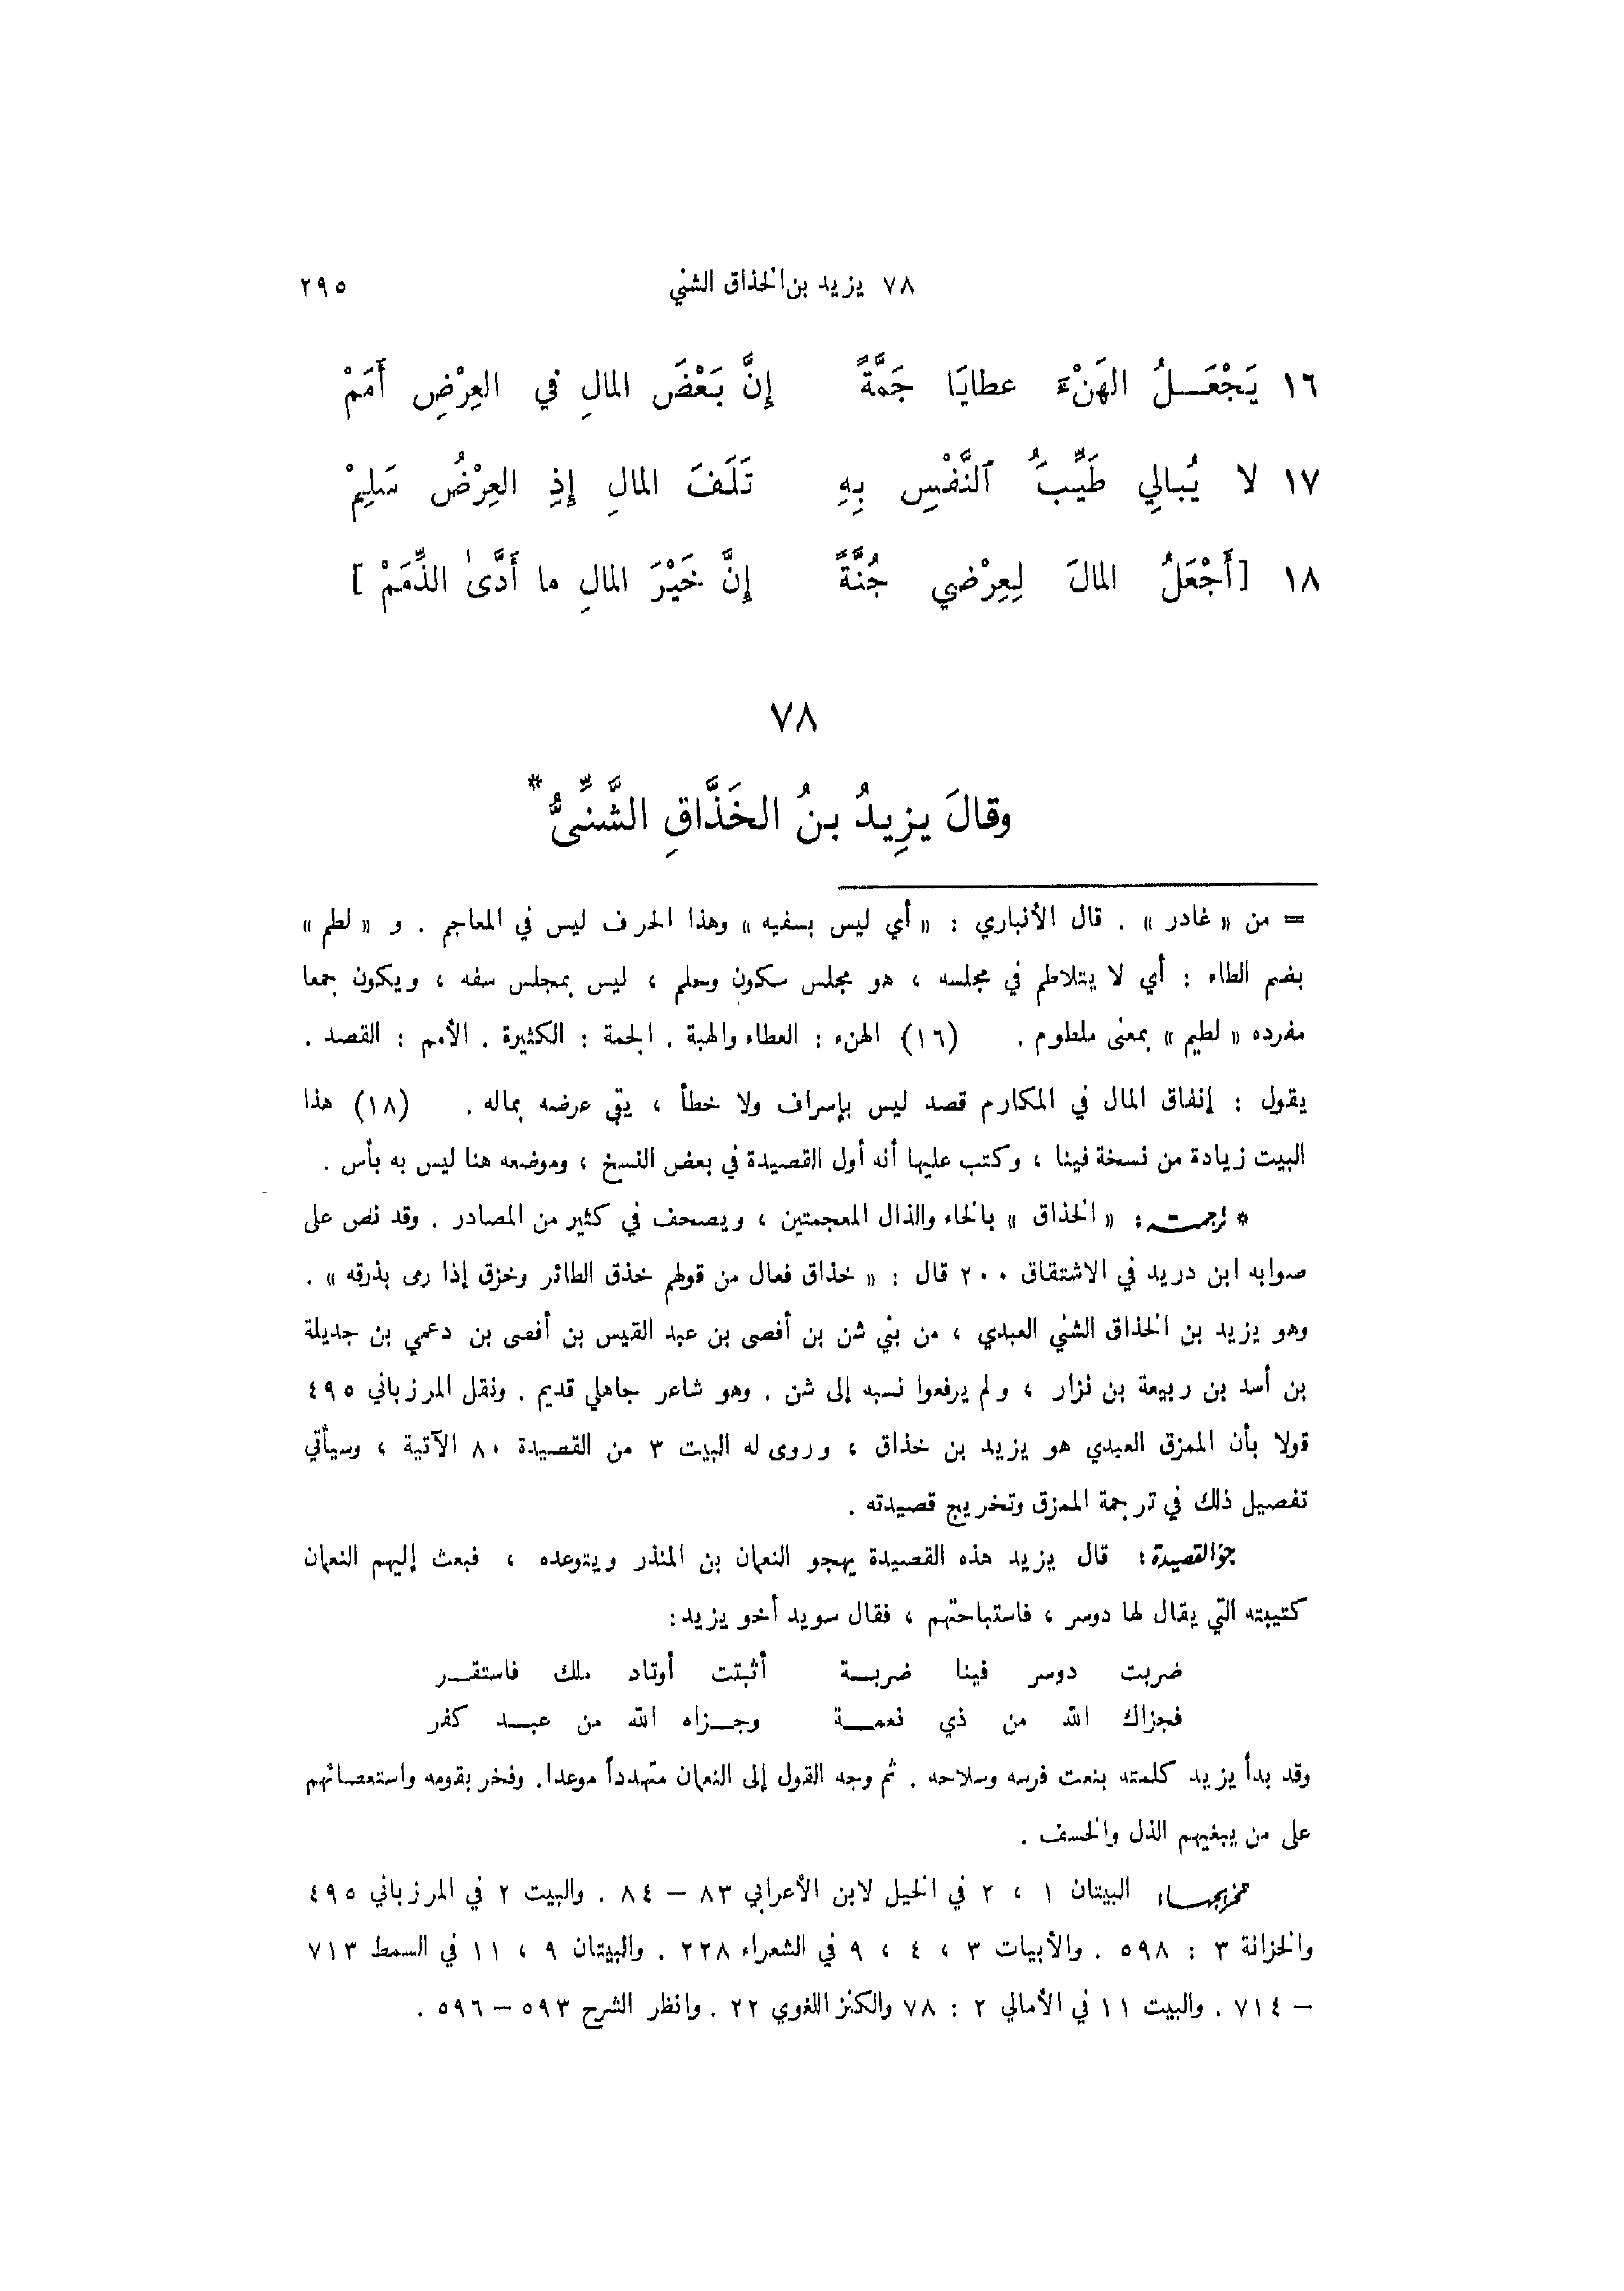 ٧٨ يزيد بن الخذاق الشني ٢٩٥
١٦ يَجْعَــلُ الهَنْءَ عطايَا جَمَّةً إِنَّ بَعْضَ المالِ في العِرْضِ أَمَمْ
١٧ لا يُبالِي طَيِّبُ ٱلنَّفْسِ بِهِ تَلَفَ المالِ إِذِ العِرْضُ سَلِيمْ
١٨ [أَجْعَلُ المالَ لِعِرْضي جُنَّةً إِنَّ خَيْرَ المالِ ما أَدَّىٰ الذِّمَمْ]
٧٨
وقالَ يزِيدُ بنُ الخَذَّاقِ الشَّنِّىُّ*
= من « غادر » . قال الأنباري : « أي ليس بسفيه » وهذا الحرف ليس في المعاجم . و « لطم »
بضم الطاء : أي لا يتلاطم في مجلسه ، هو مجلس سكون وحلم ، ليس بمجلس سفه ، ويكون جمعا
مفرده « لطيم » بمعنى ملطوم . (١٦) الهنء : العطاء والهبة . الجمة : الكثيرة . الأمم : القصد .
يقول : إنفاق المال في المكارم قصد ليس بإسراف ولا خطأ ، يقي عرضه بماله . (١٨) هذا
البيت زيادة من نسخة فينا ، وكتب عليها أنه أول القصيدة في بعض النسخ ، وموضعه هنا ليس به بأس .
* ترجمته : « الخذاق » بالخاء والذال المعجمتين ، ويصحف في كثير من المصادر . وقد نص على
صوابه ابن دريد في الاشتقاق ٢٠٠ قال : « خذاق فعال من قولهم خذق الطائر وخزق إذا رمى بذرقه » .
وهو يزيد بن الخذاق الشني العبدي ، من بني شن بن أفصى بن عبد القيس بن أفصى بن دعمي بن جديلة
بن أسد بن ربيعة بن نزار ، ولم يرفعوا نسبه إلى شن . وهو شاعر جاهلي قديم . ونقل المرزباني ٤٩٥
قولا بأن الممزق العبدي هو يزيد بن خذاق ، وروى له البيت ٣ من القصيدة ٨٠ الآتية ، وسيأتي
تفصيل ذلك في ترجمة الممزق وتخريج قصيدته .
جوّ القصيدة : قال يزيد هذه القصيدة يهجو النعمان بن المنذر ويتوعده ، فبعث إليهم النعمان
كتيبته التي يقال لها دوسر ، فاستباحتهم ، فقال سويد أخو يزيد :
ضربت دوسر فينا ضربــة أثبتت أوتاد ملك فاستقــر
فجزاك الله من ذي نعمــة وجــزاه الله من عبــد كفر
وقد بدأ يزيد كلمته بنعت فرسه وسلاحه . ثم وجه القول إلى النعمان متهدداً موعدا . وفخر بقومه واستعصائهم
على من يبغيهم الذل والخسف .
تخريجها : البيتان ١ ، ٢ في الخيل لابن الأعرابي ٨٣ – ٨٤ . والبيت ٢ في المرزباني ٤٩٥
والخزانة ٣ : ٥٩٨ . والأبيات ٣ ، ٤ ، ٩ في الشعراء ٢٢٨ . والبيتان ٩ ، ١١ في السمط ٧١٣
– ٧١٤ . والبيت ١١ في الأمالي ٢ : ٧٨ والكنز اللغوي ٢٢ . وانظر الشرح ٥٩٣ – ٥٩٦ .